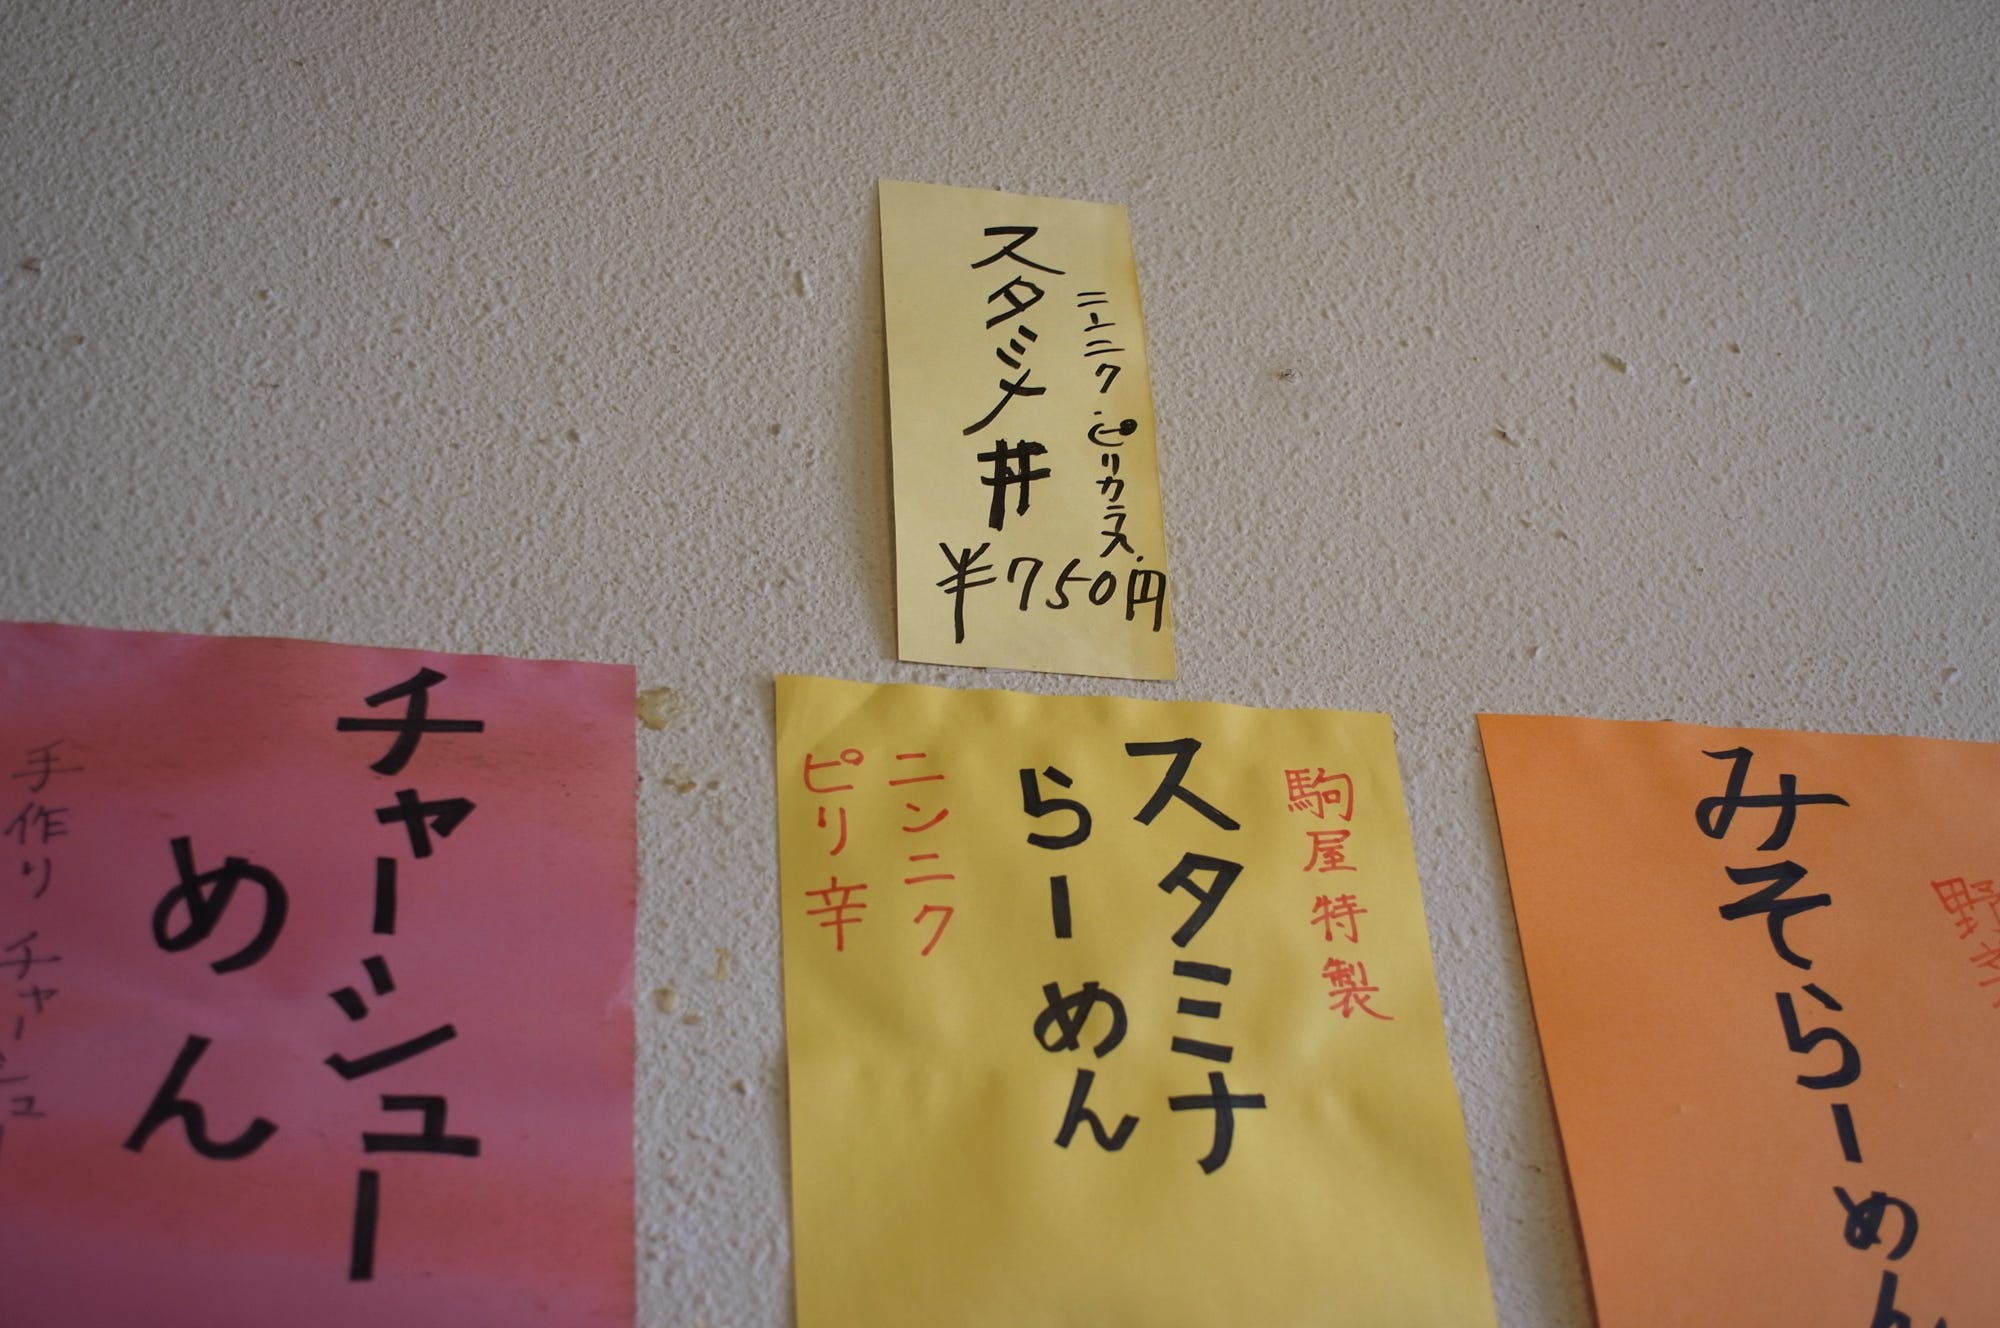 スタミナ丼
ニンニク・ピリカラ
¥750円
チャーシュー
めん
手作りチャーシュー
駒屋特製
スタミナ
らーめん
ニンニク
ピリ辛
みそらーめん
野菜